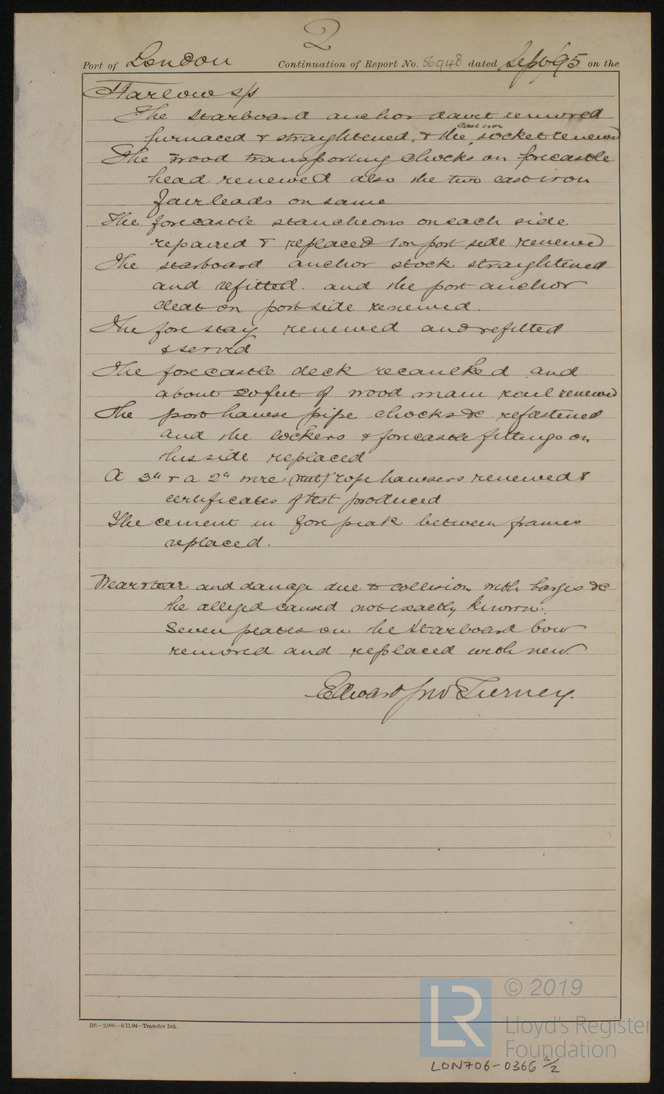 2
Port of London Continuation of Report No. 56948 dated Sept 95 on the
Harlow s/s
The starboard anchor davit removed
cast iron
furnaced & straightened, & the socket renewed
The wood transporting chocks on forecastle
head renewed also the two cast iron
fairleads on same
The forecastle stancheons on each side
repaired & replaced 1 on port side renewed
The starboard anchor stock straightened
and refitted. and the port anchor
cleat on port side renewed.
The fore stay renewed and refitted
& served
The forecastle deck recaulked and
about 20 feet of wood main rail renewed
The port hawse pipe chocks &c refastened
and the lockers & forecastle fittings on
this side replaced
A 3" & a 2" wire rope hawsers renewed &
certificates of test produced
The cement in fore peak between frames
replaced.
Wear & tear and damage due to collision with barges &c
the alleged caused not exactly known.
Seven plates on the starboard bow
removed and replaced with new
Edward Jno Tierney.
–2,000.–6/11/94–Transfer Ink.
LR
© 2019
Lloyd's Register
Foundation
LON706-0366 2/2